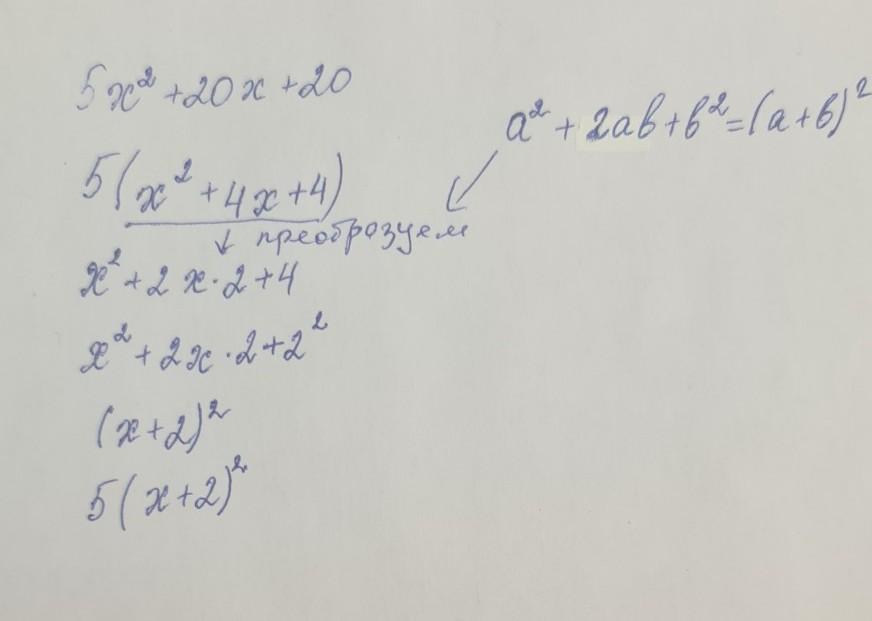 5x² + 20x + 20
a² + 2ab + b² = (a + b)²
5(x² + 4x + 4)
↓ преобразуем
x² + 2x · 2 + 4
x² + 2x · 2 + 2²
(x + 2)²
5(x + 2)²